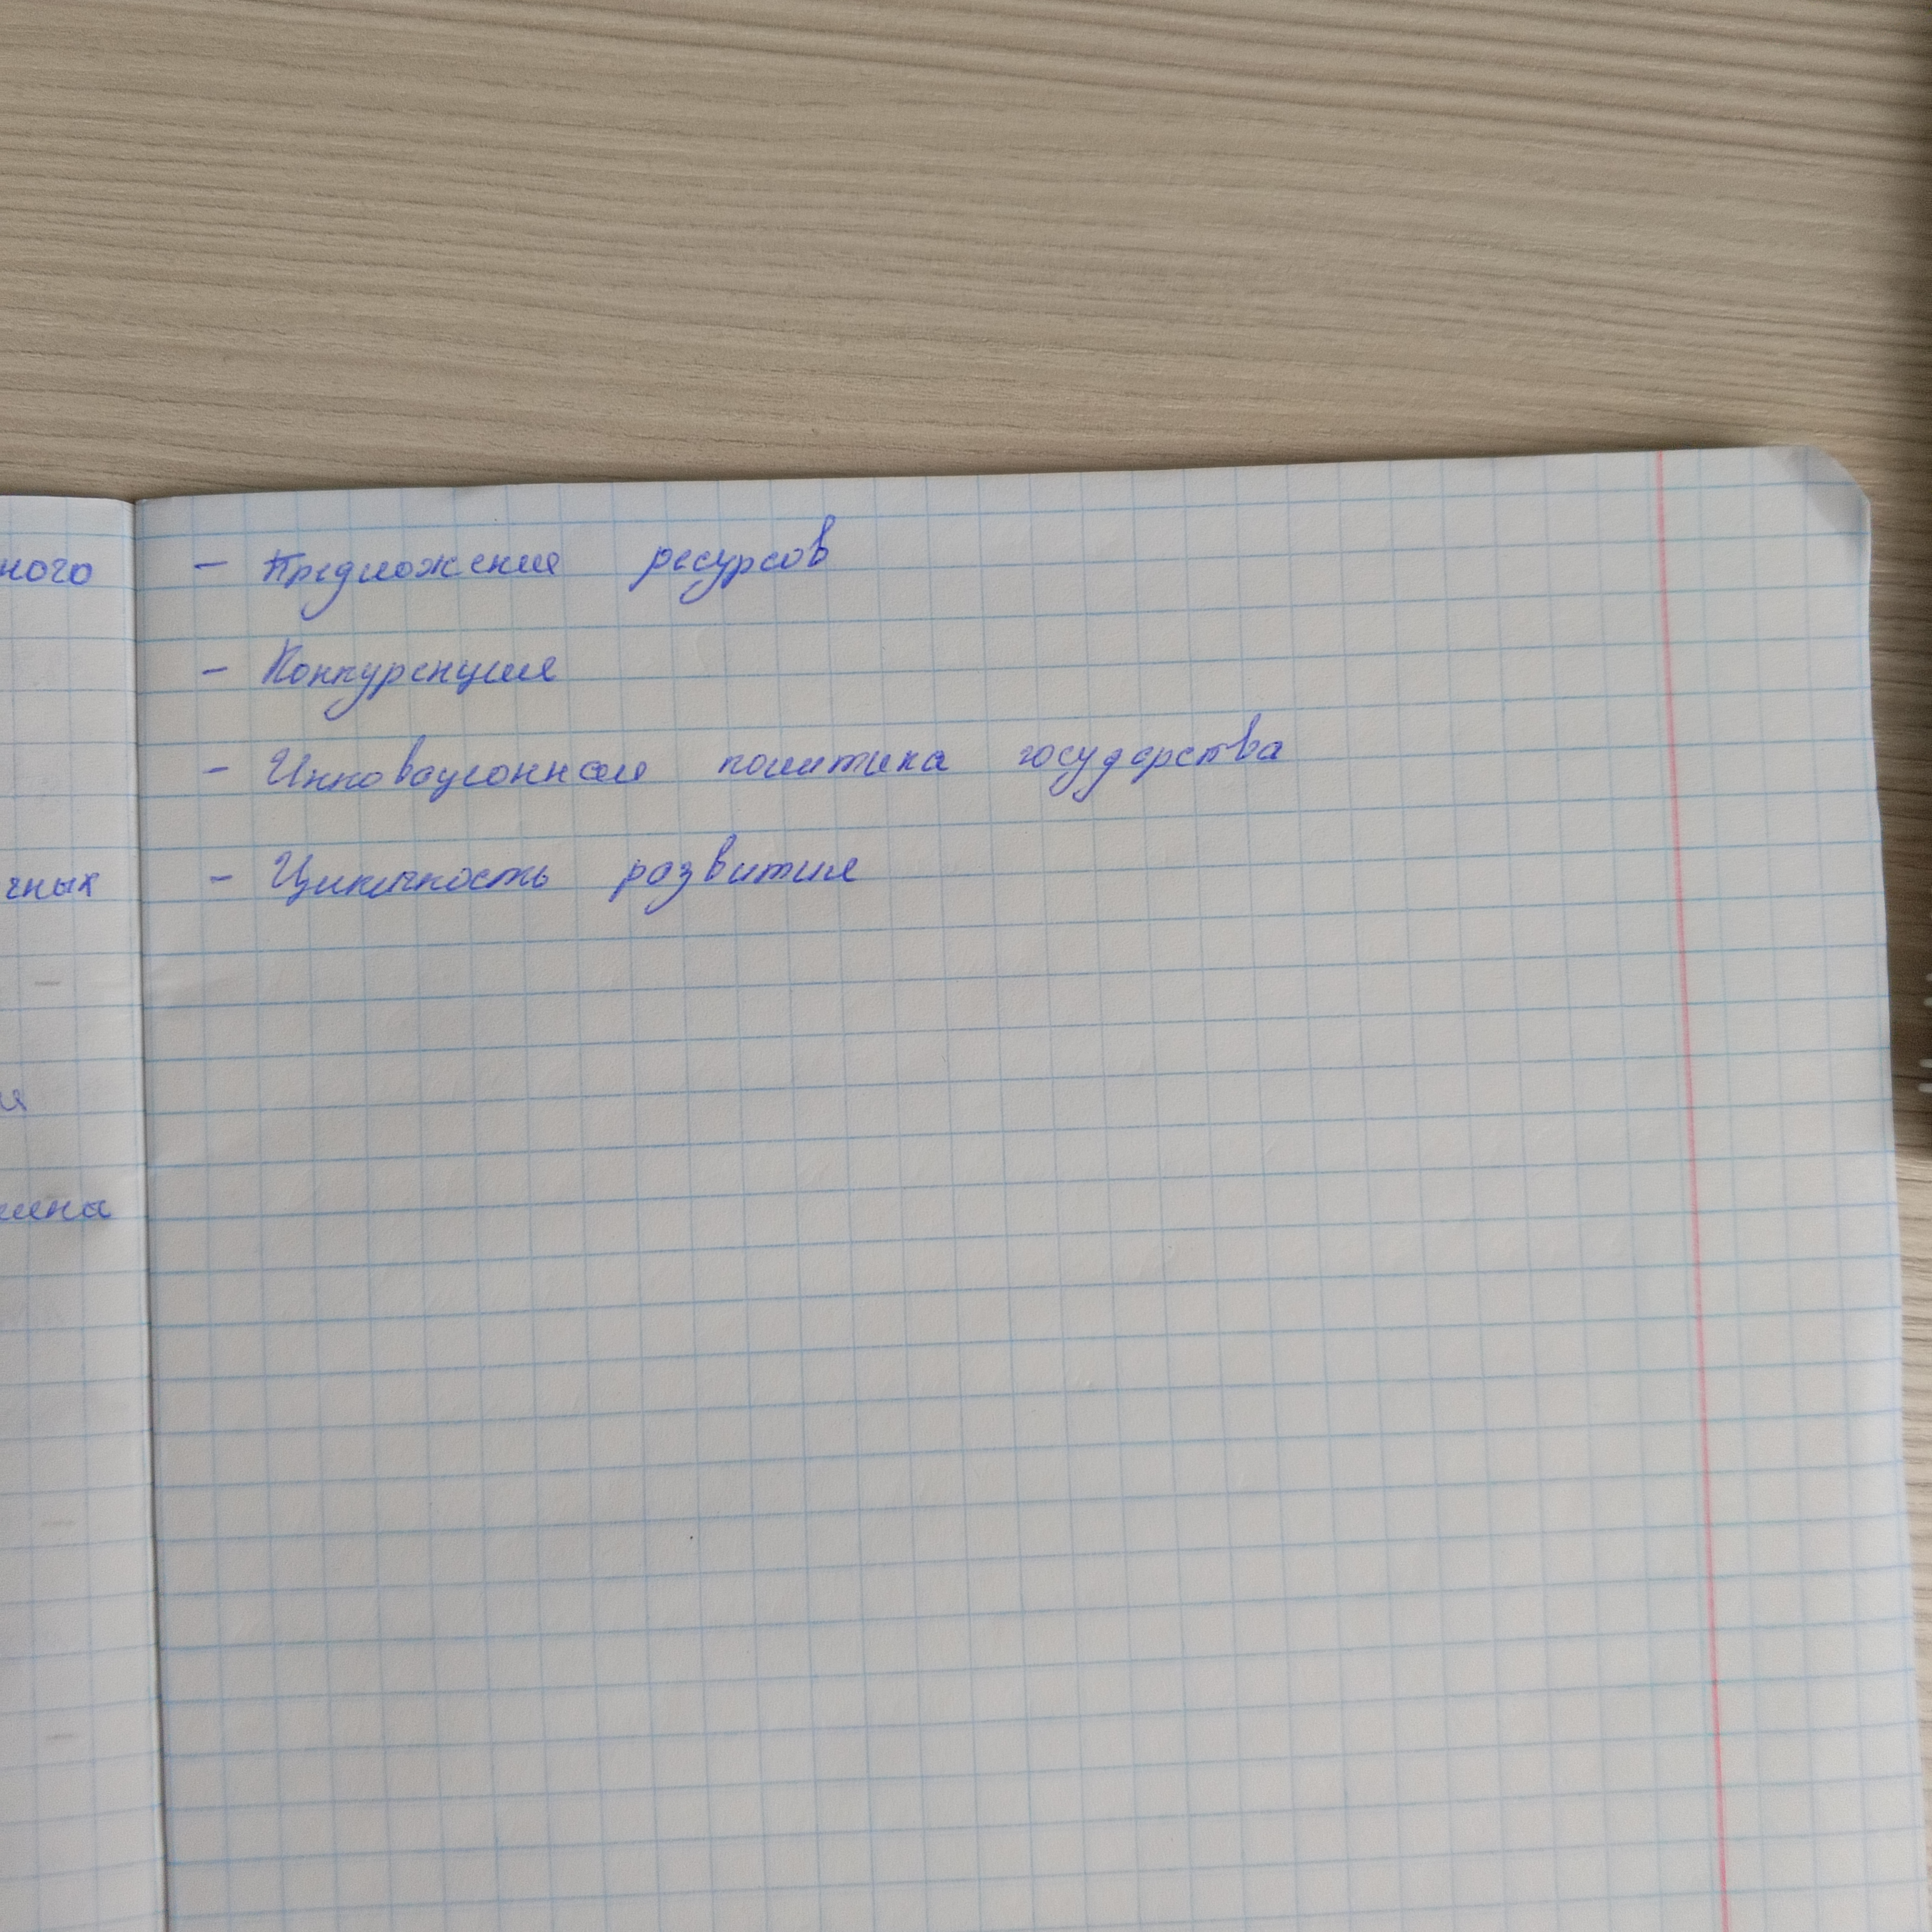 - Предложения ресурсов
- Конкуренция
- Инновационная политика государства
- Цикличность развития
ного
чных
ия
мена